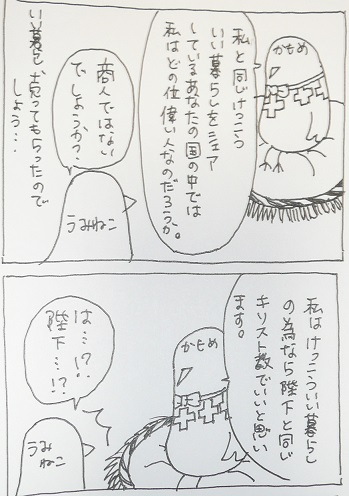 かもめ
私と同じけっこう
いい暮らしをシェア
しているあなたの国の中では
私はどの位偉い人なのだろうか。
商人ではない
でしようか?
うみねこ
いい暮らし売ってもらったので
しょう…
私はけっこういい暮らし
の為なら陛下と同じ
キリスト教でいいと思い
ます。
かもめ
は…!?
陛下…!?
うみ
ねこ